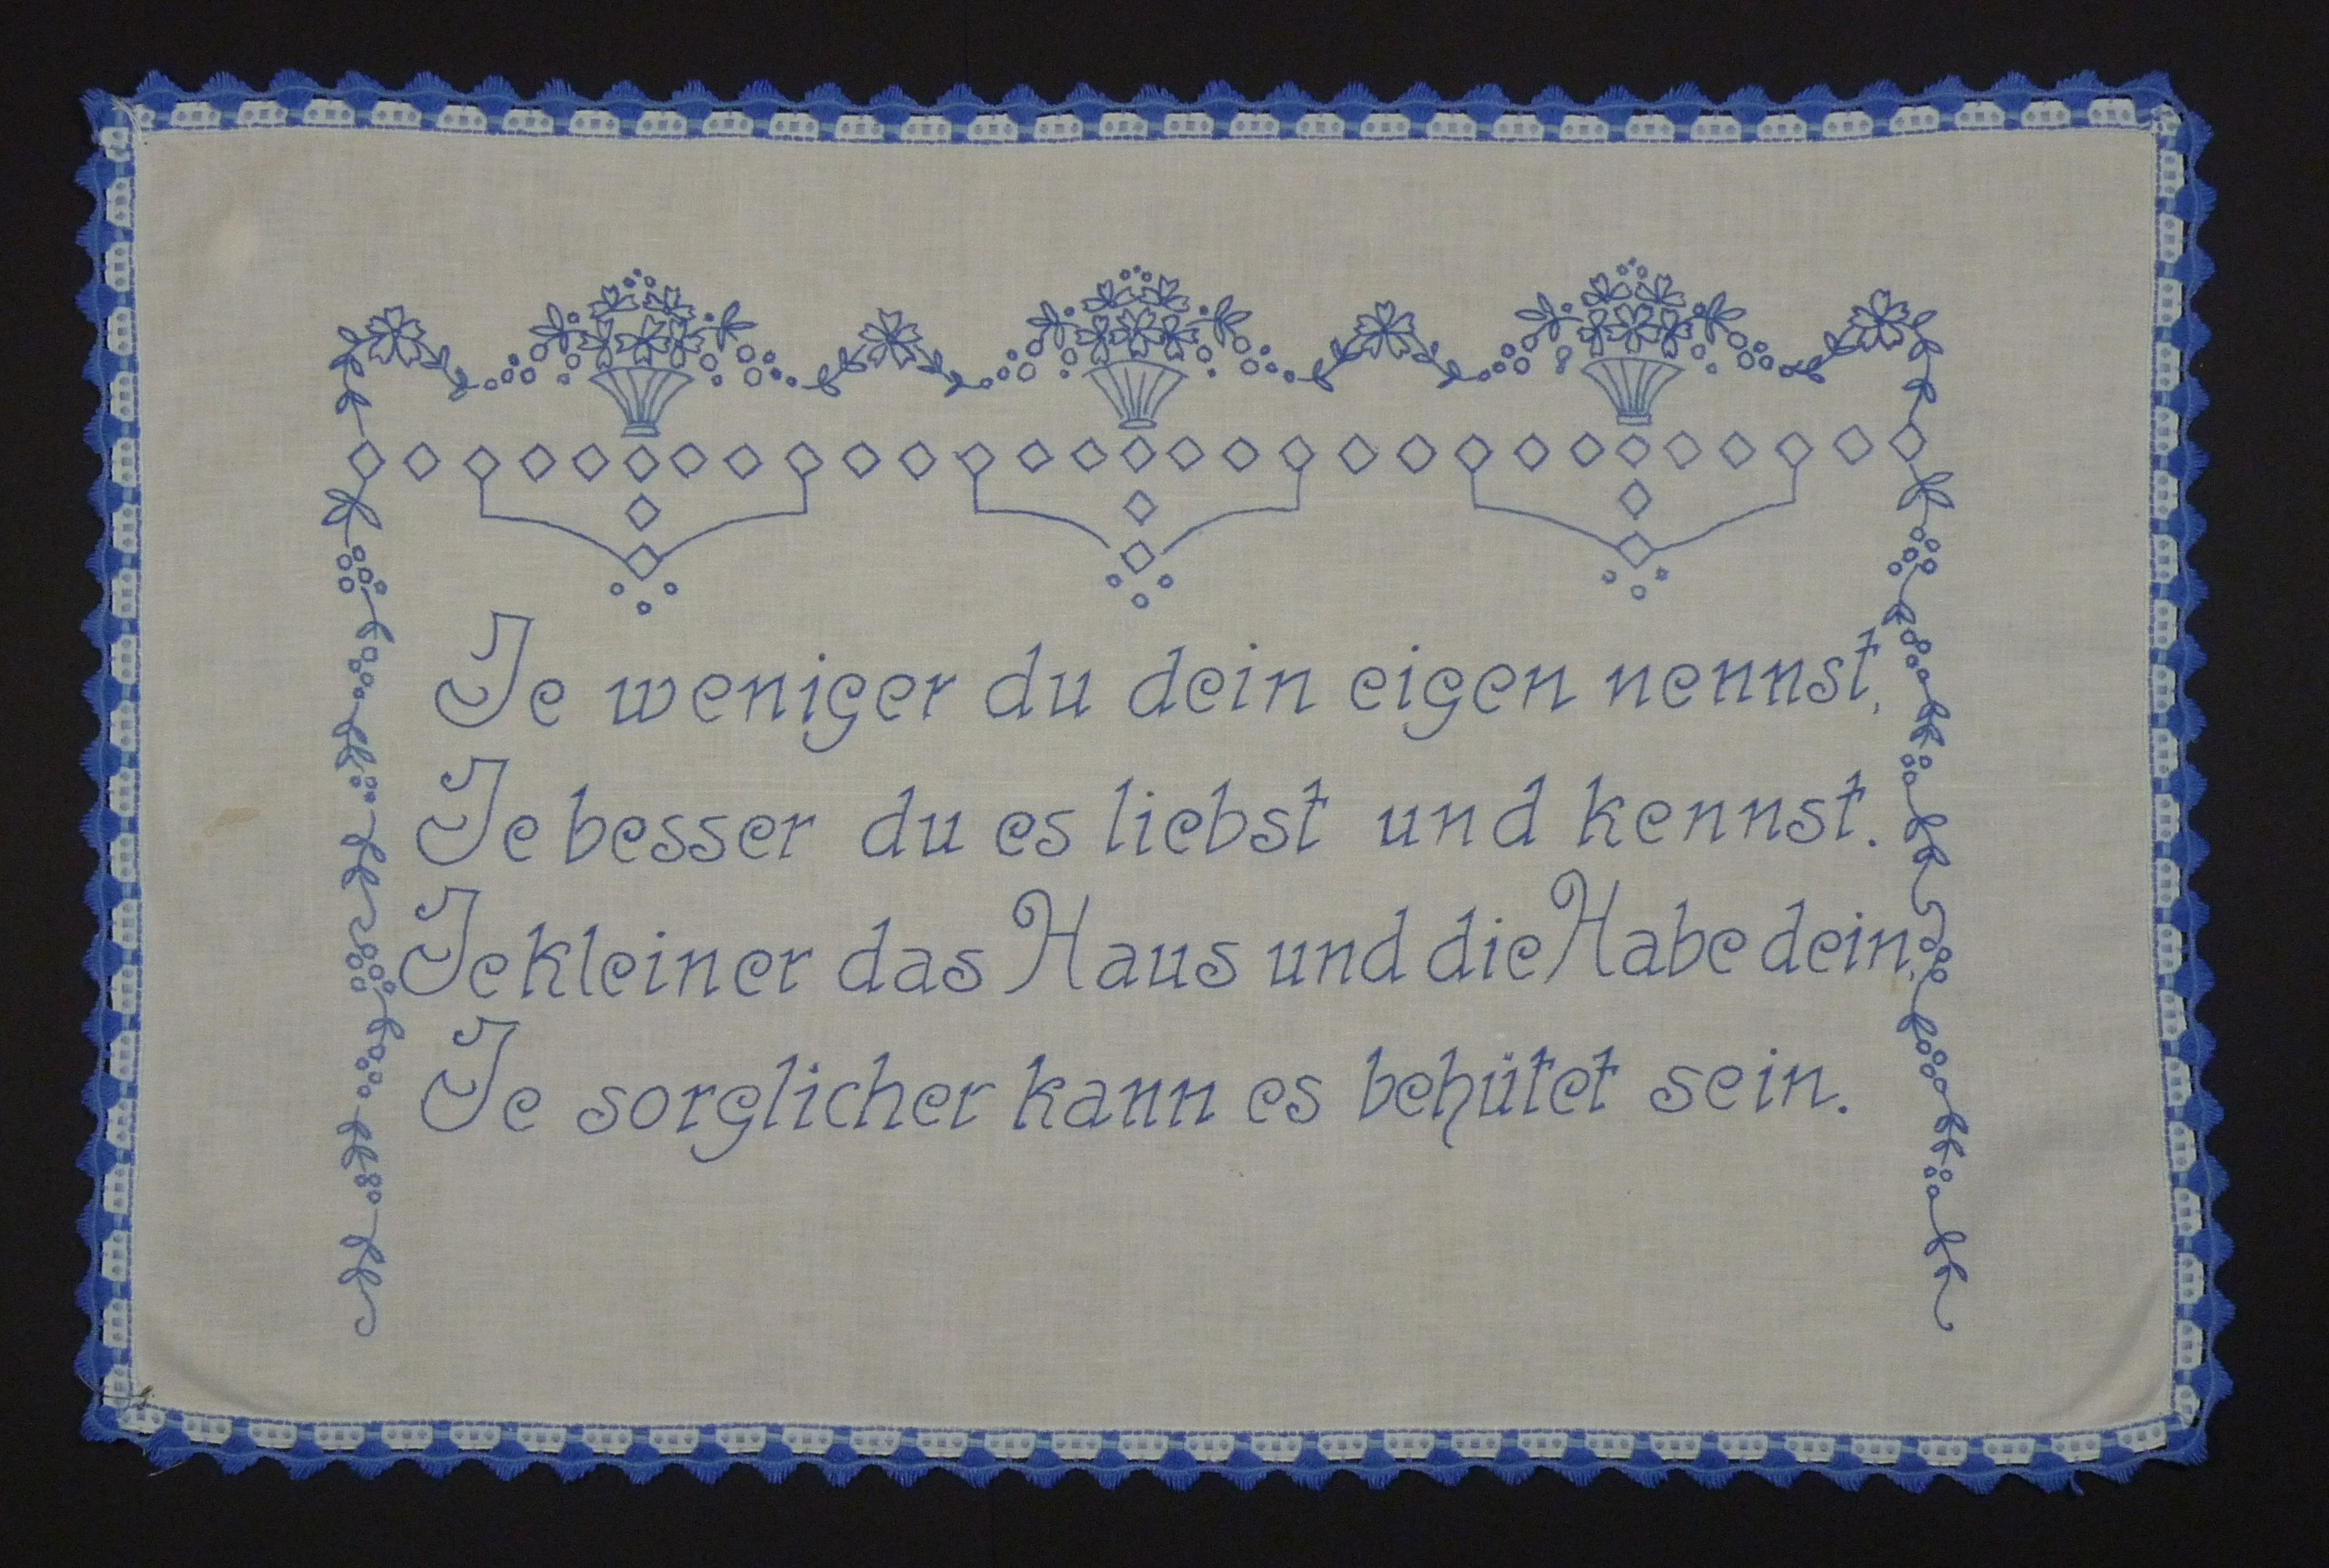 Je weniger du dein eigen nennst,
Je besser du es liebst und kennst.
Je kleiner das Haus und die Habe dein,
Je sorglicher kann es behütet sein.